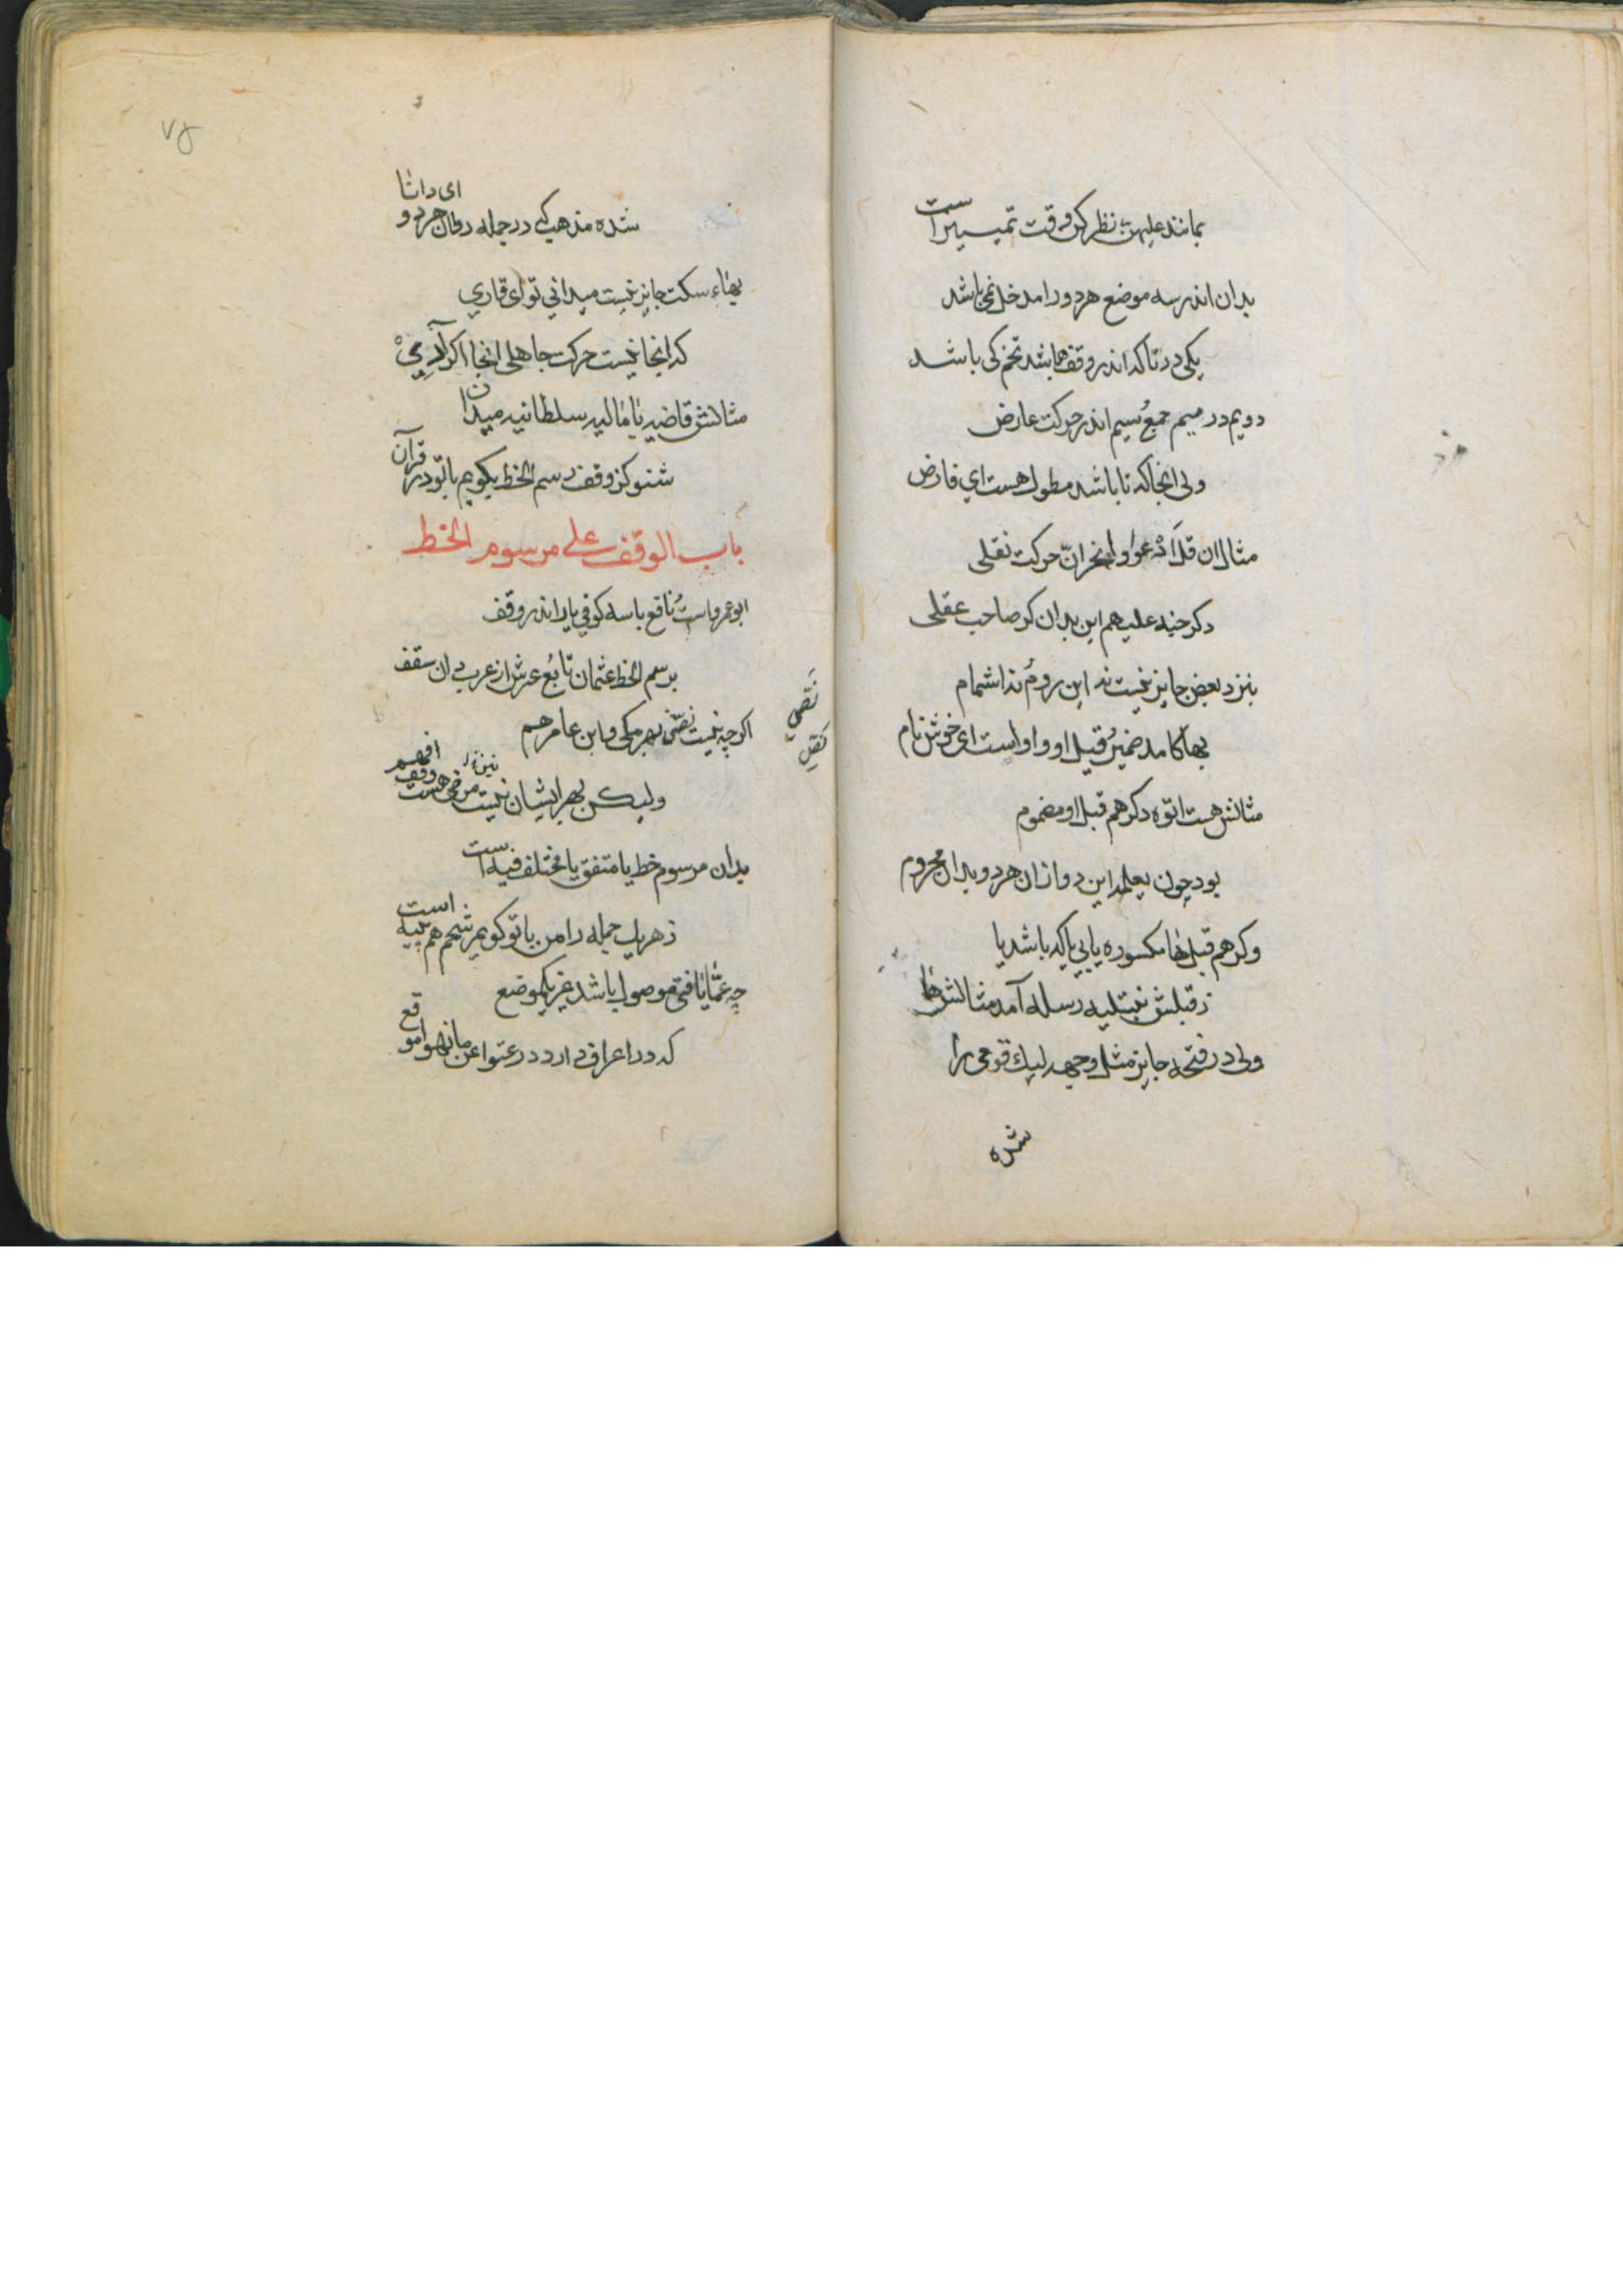 بمانند علیهن نظر کن وقت تمییز است
بدان اندر سه موضع هر دو را مدخل نمی باشد
یکی در تا که اندر وقف ها باشد تخم کی باشد
دویم در میم جمع سیم اندر حرکت عارض
ولی انجا که تا باشد مطول هست ای فارض
مثال ان قل ادعوا و انحر ان حرکت نقلی
دکر حینه علیهم این بدان کر صاحب عقلی
بنزد بعض جایز نیست نه این روم نه اشمام
بها کامد ضمیر قبل او واو است ای خوش نام
مثالش هست اتوه دکر هم قبل او مضموم
بود چون یعلمه این دو ازان هر دو بدان محروم
وکر هم قبل ها مکسوره یابی یا که باشد یا
ز قبلش نبتلیه رسله آمد مثالش ها
ولی در فتحه جایز مثل وجهه لیک قومی را
شده
۷۵
شده مذهب که در جمله روان هر دو ای دانا
بهاء سکت جایز نیست میدانی تو ای قاری
که اینجا نیست حرکت جاهلی انجا اکر آری
مثالش قاضیه یا مالیه سلطانیه میدان
شنو کز وقف رسم الخط بکویم با تو در قرآن
باب الوقف علی مرسوم الخط
ابو عمرو است نافع با سه کوفی یار اندر وقف
برسم الخط عثمان تابع عرش از عرب دان سقف
اکرچه نیست نصی بهر مکی و ابن عامر هم
ولیکن بهر ایشان نیست مرضی هست وقف افهم
بدان مرسوم خط یا متفق یا مختلف فیه است
ز هر یک جمله را من با تو کویم شحم هم پیه است
چه عما یافتی موصول باشد غیر یکموضع
که در اعراف دارد در عتوا عن ما نهوا موقع
نصی
نقل